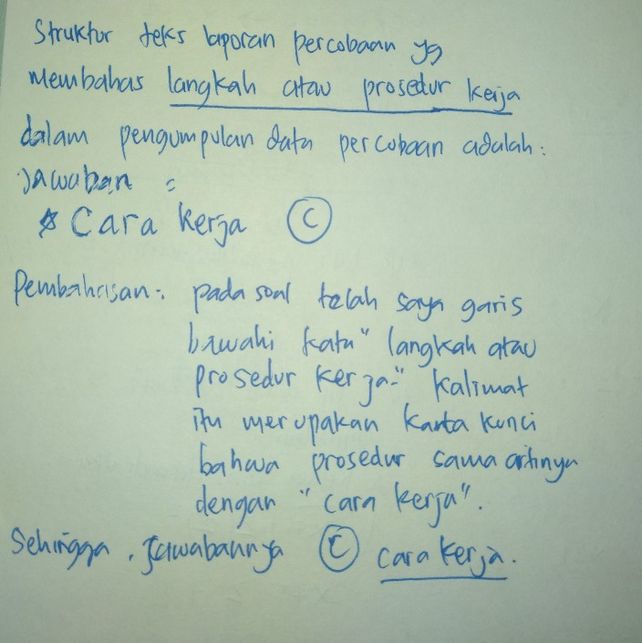 Struktur teks laporan percobaan yg
membahas langkah atau prosedur kerja
dalam pengumpulan data percobaan adalah :
Jawaban :
* Cara kerja C
Pembahasan : pada soal telah saya garis
bawahi kata " langkah atau
prosedur kerja." kalimat
itu merupakan kata kunci
bahwa prosedur sama artinya
dengan " cara kerja".
Sehingga , Jawabannya C cara kerja.